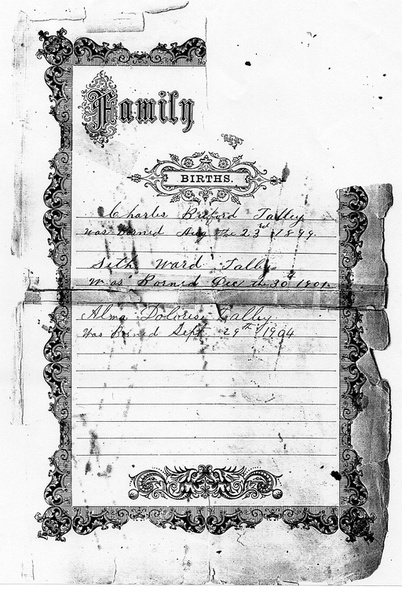 Family
BIRTHS.
Charles Talley
was borned Aug the 23rd 1899
Seth Ward Talley
was Borned Dec the 30 1901
Alma Dolores Talley
was borned Sept. 29th 1904